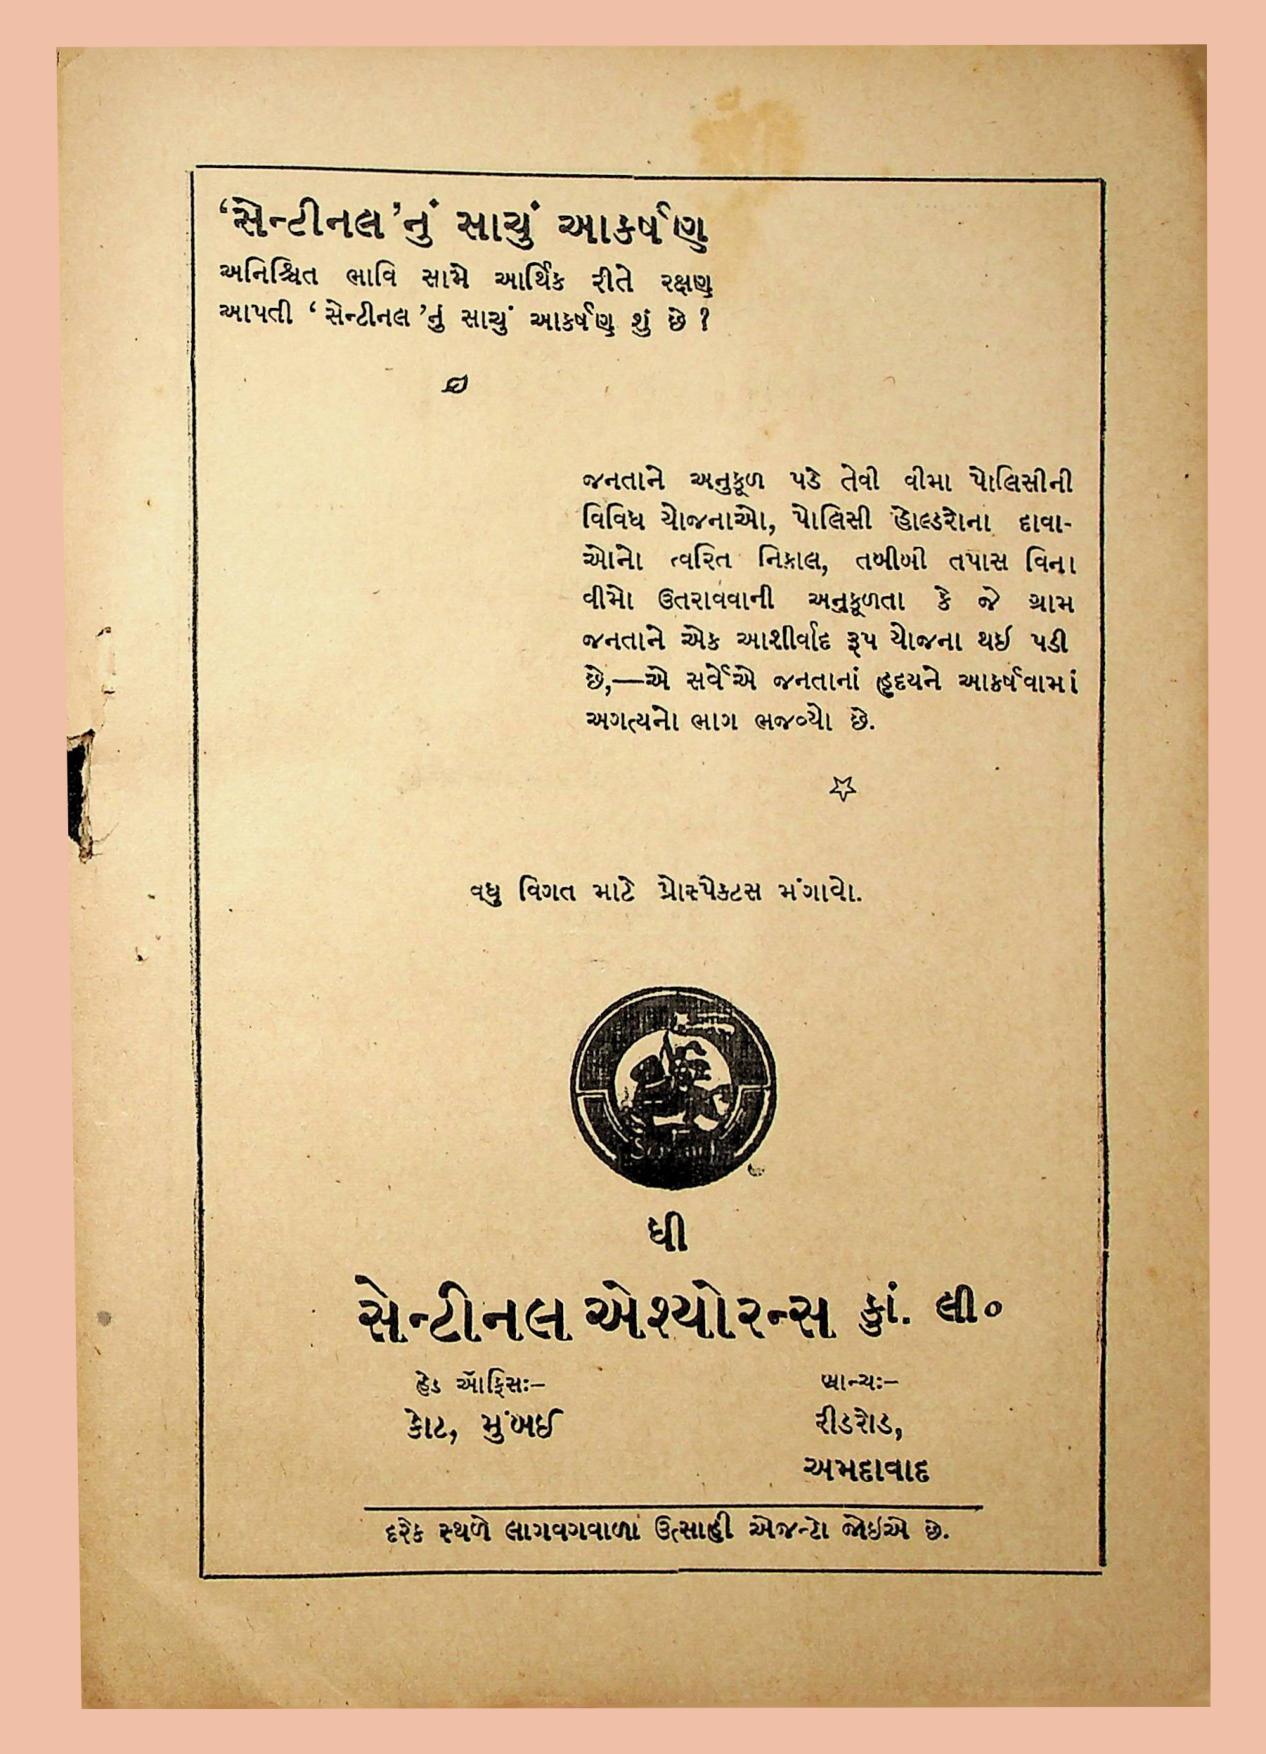 ‘સેન્ટીનલ’નું સાચું આકર્ષણ
અનિશ્ચિત ભાવિ સામે આર્થિક રીતે રક્ષણ
આપતી ‘સેન્ટીનલ’નું સાચું આકર્ષણ શું છે ?
જનતાને અનુકૂળ પડે તેવી વીમા પોલિસીની
વિવિધ યોજનાઓ, પોલિસી હોલ્ડરોના દાવા-
ઓનો ત્વરિત નિકાલ, તબીબી તપાસ વિના
વીમો ઉતરાવવાની અનુકૂળતા કે જે ગ્રામ
જનતાને એક આશીર્વાદ રૂપ યોજના થઈ પડી
છે,—એ સર્વેએ જનતાનાં હૃદયને આકર્ષવામાં
અગત્યનો ભાગ ભજવ્યો છે.
વધુ વિગત માટે પ્રોસ્પેક્ટસ મંગાવો.
ધી
સેન્ટીનલ એશ્યોરન્સ કુાં. લી૦
હેડ ઑફિસઃ– બ્રાન્ચઃ–
કોટ, મુંબઈ રીડરોડ,
અમદાવાદ
દરેક સ્થળે લાગવગવાળા ઉત્સાહી એજન્ટો જોઇએ છે.